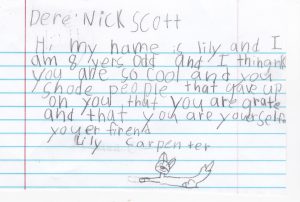 Dere: Nick Scott
Hi my name is lily and I
am 8 yers odd and I thingnk
you are so cool and you
shode people that gave up
on you that you are grate
and that you are yourself.
youer firend
Lily Carpenter